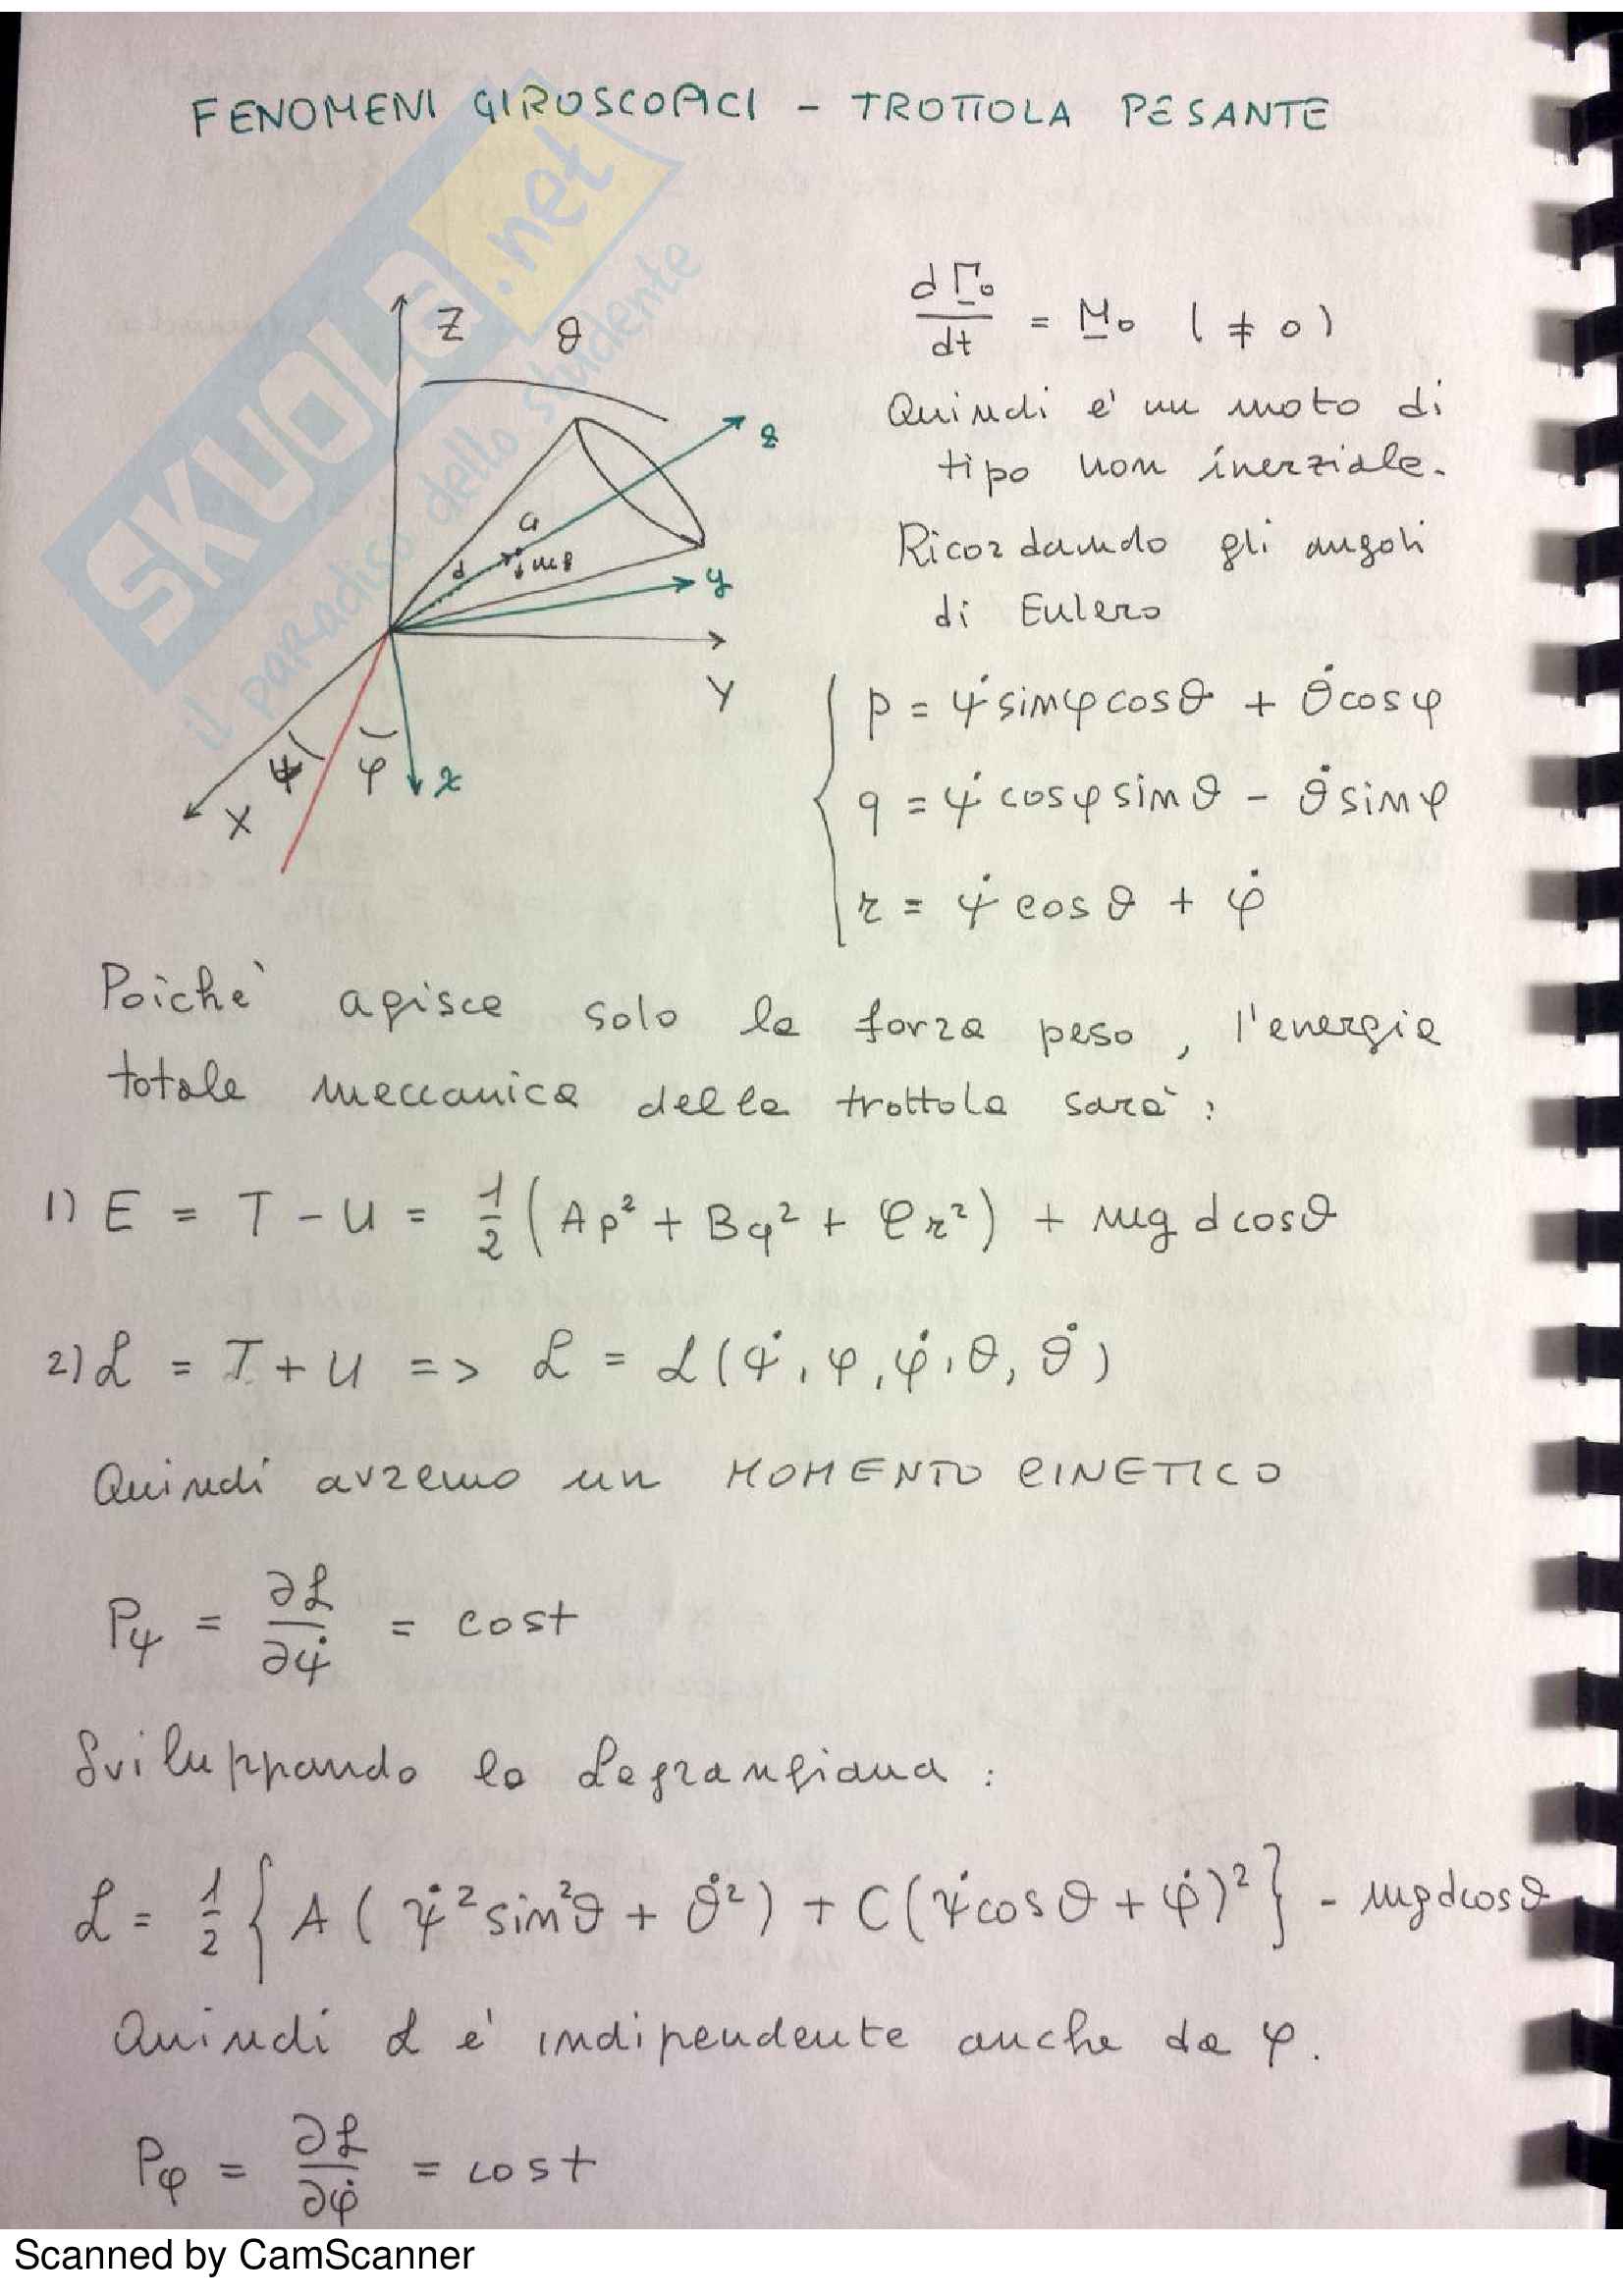 FENOMENI GIROSCOPICI - TROTTOLA PESANTE
SKUOLA.net
il paradiso dello studente
Z
θ
z
G
d
mg
y
Y
ψ
φ
x
X
dΓ₀/dt = M₀ (≠0)
Quindi e' un moto di
tipo non inerziale.
Ricordando gli angoli
di Eulero
p = ψ̇ sinφ cosθ + θ̇ cosφ
q = ψ̇ cosφ sinθ - θ̇ sinφ
r = ψ̇ cosθ + φ̇
Poichè agisce solo la forza peso, l'energia
totale meccanica della trottola sarà:
1) E = T - U = 1/2 (Ap² + Bq² + Cr²) + mg d cosθ
2) ℒ = T + U => ℒ = ℒ(ψ̇, φ, φ̇, θ, θ̇)
Quindi avremo un MOMENTO CINETICO
Pψ = ∂ℒ/∂ψ̇ = cost
Sviluppando la Lagrangiana:
ℒ = 1/2 {A(ψ̇² sin²θ + θ̇²) + C(ψ̇ cosθ + φ̇)²} - mgdcosθ
Quindi ℒ e' indipendente anche da φ.
Pφ = ∂ℒ/∂φ̇ = cost
Scanned by CamScanner